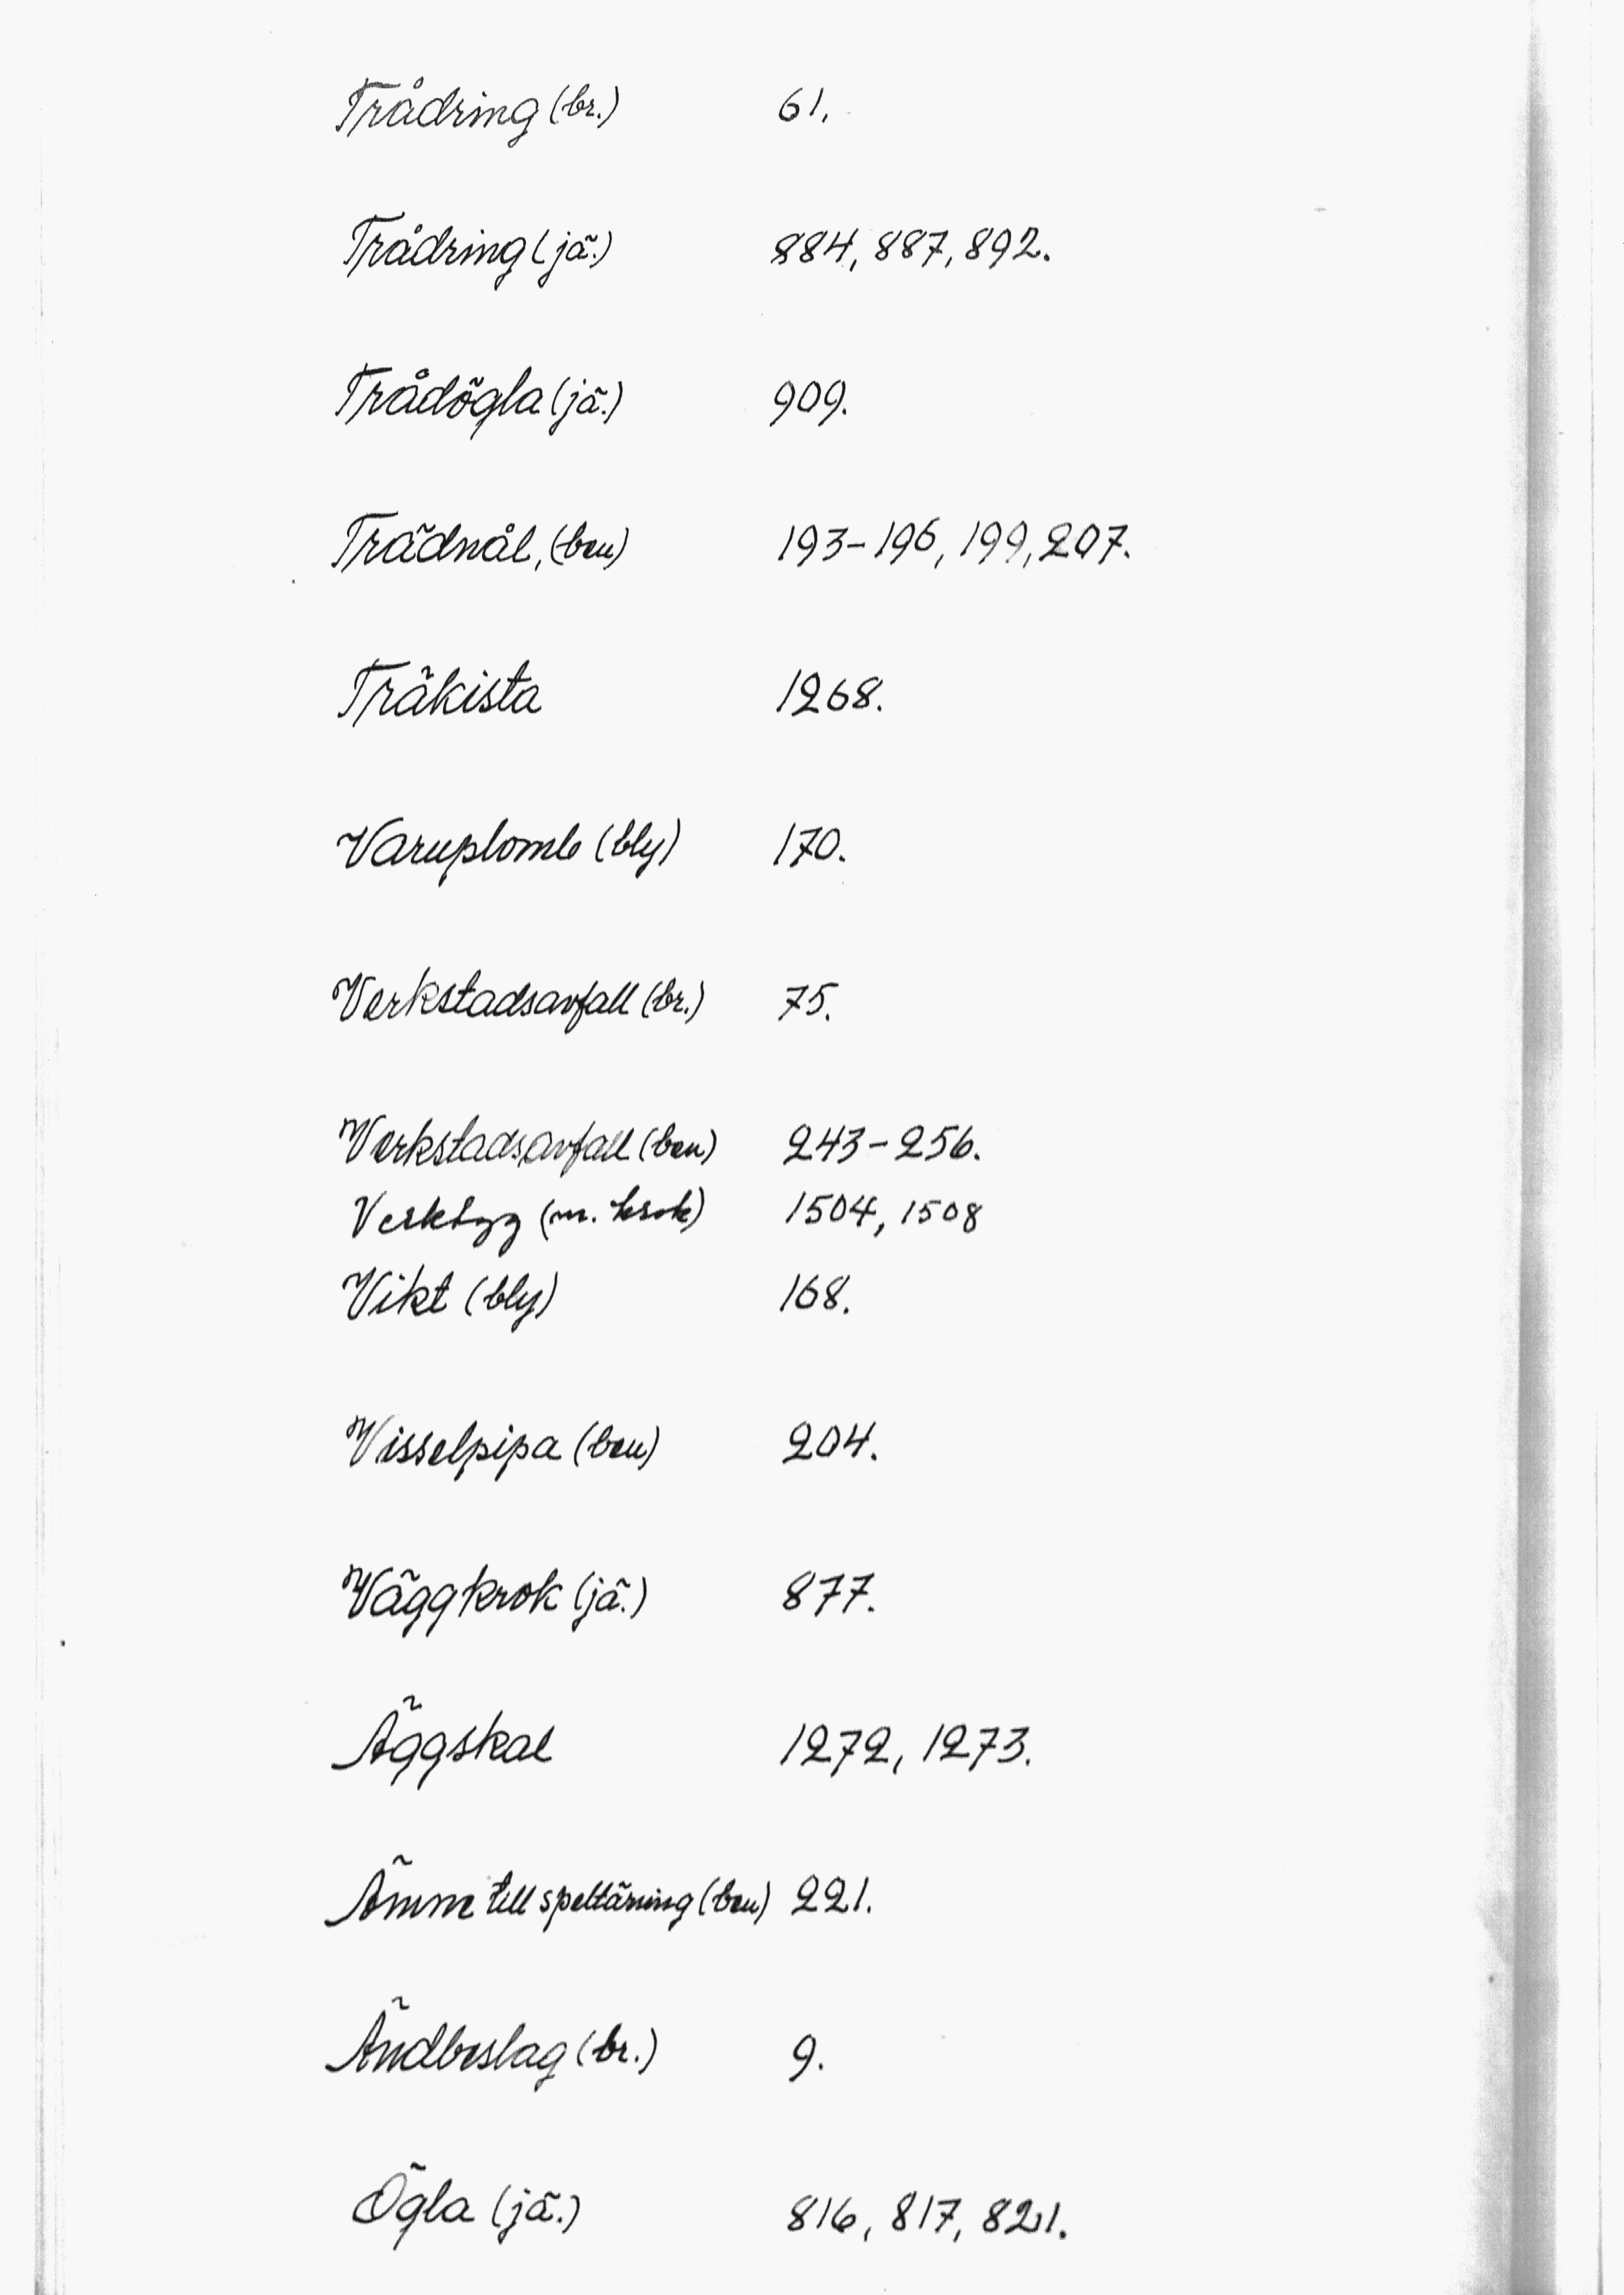 Trådring (br.) 61.
Trådring (jä.) 884, 887, 892.
Trådögla (jä.) 909.
Trädnål, (ben) 193-196, 199, 207.
Träkista 1268.
Varuplomb (bly) 170.
Verkstadsavfall (br.) 75.
Verkstadsavfall (ben) 243-256.
Verktyg (m. krok) 1504, 1508
Vikt (bly) 168.
Visselpipa (ben) 204.
Väggkrok (jä.) 877.
Äggskal 1272, 1273.
Ämne till speltärning (ben) 221.
Ändbeslag (br.) 9.
Ögla (jä.) 816, 817, 821.